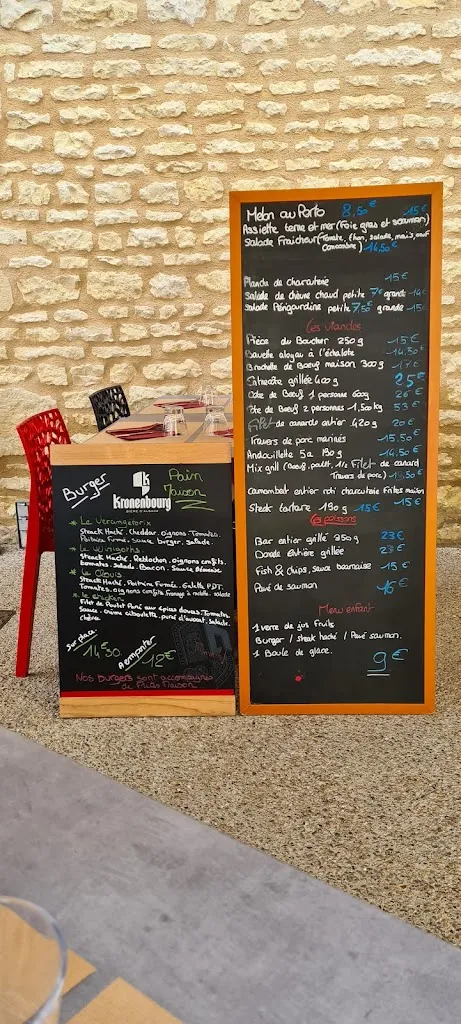 Burger
Kronenbourg
Pain
Maison
* Le Verangetorix
Steack Haché, Cheddar, oignons, Tomates,
Poitrine Fumé, sauce burger, salade.
* Le Wisigoths
Steack Haché, Reblochon, oignons confits,
tomates, salade, Bacon, Sauce Béarnaise
* Le Clovis
Steack Haché, Poitrine Fumée, Galette PDT,
Tomates, oignons confits, fromage à raclette, salade
* le chicken
Filet de Poulet Pané aux épices douces, Tomates,
Sauce crème ciboulette, pané d'avoat, salade,
chèvre.
Sur place 14€50.
A emporter 12€
Nos Burgers sont accompagnés
de Frites Maison
Melon au Porto 8,50€
Assiette terre et mer (Foie gras et saumon) 15€
Salade Fraicheur (Tomate, thon, salade, maïs, oeuf
Concombre) 14,50€
Planche de charcuterie 15€
Salade de chèvre chaud petite 7€ grande 14€
Salade Périgourdine petite 7,50€ grande 15€
Les viandes
Pièce du Boucher 250g 15€
Bavette aloyau à l'échalote 14,50€
Brochette de Boeuf maison 300g 17€
Entrecôte grillée 400g 25€
Côte de Boeuf 1 personne 600g 26€
Côte de Boeuf 2 personnes 1,500kg 53€
Filet de canards entier 420g 20€
Travers de porc marinés 15,50€
Andouillette 5a 190g 14,50€
Mix grill (Boeuf, poulet, 1/2 Filet de canard
Travers de porc) 18,50€
Camembert entier roti charcuterie Frites maison 15€
Steak tartare 190g 15€
Les poissons
Bar entier grillé 350g 23€
Dorade Entière grillée 23€
Fish & chips, sauce béarnaise 15€
Pavé de saumon 16€
Menu enfant
1 verre de jus Fruits
Burger / steak haché / Pavé saumon.
1 Boule de glace.
9€